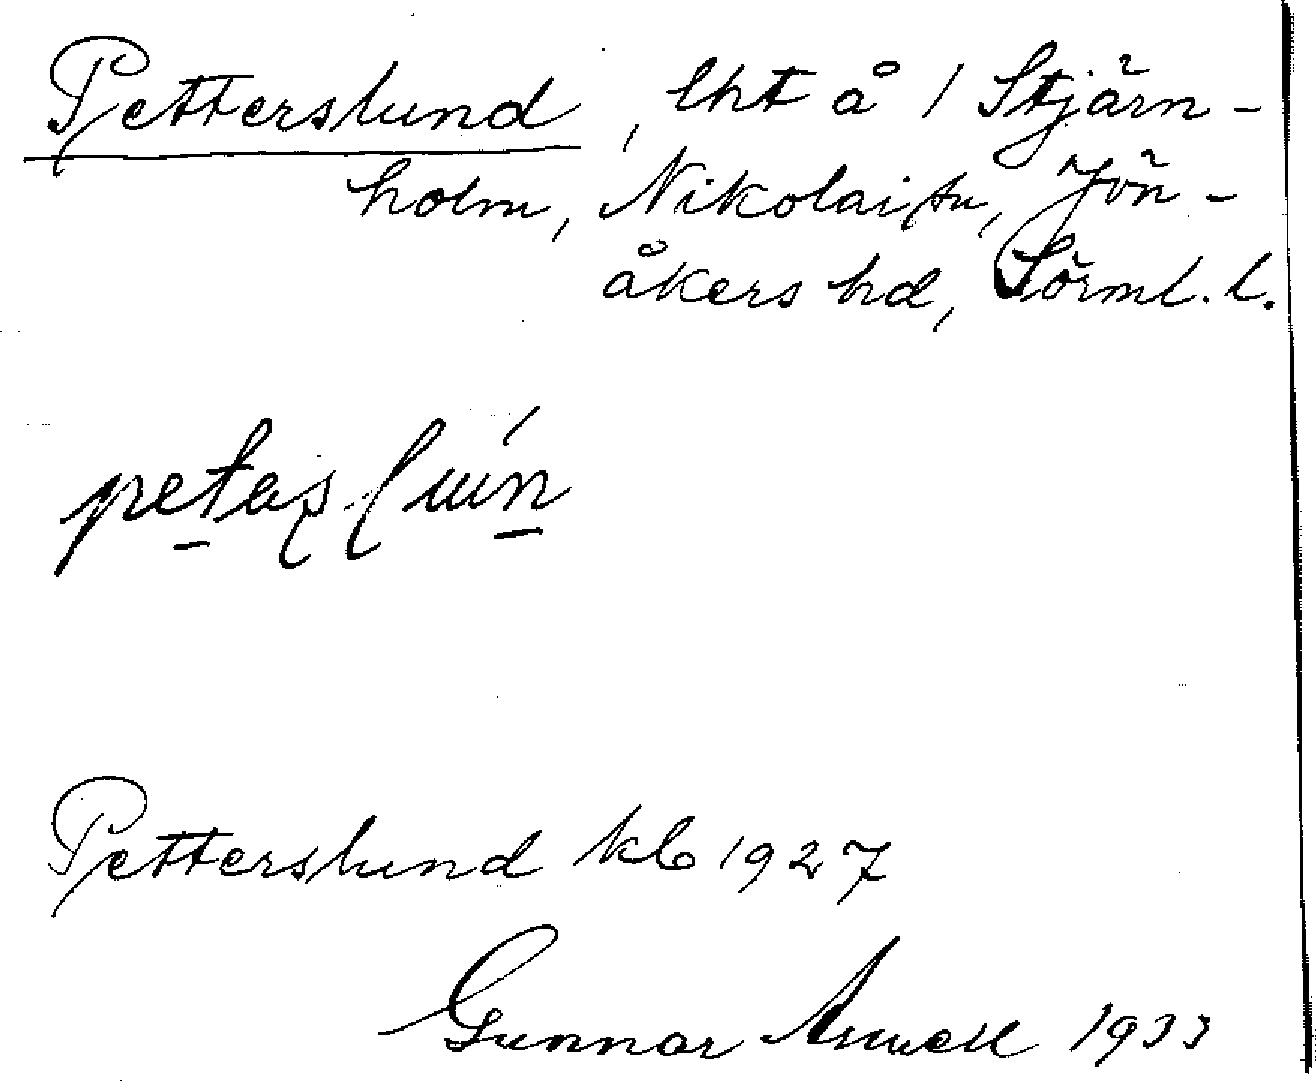 Petterslund, lht å 1 Stjärn-
holm, Nikolai sn, Jön-
åkers hd, Sörml. l.
Petterslund kb 1927
Gunnar 1933